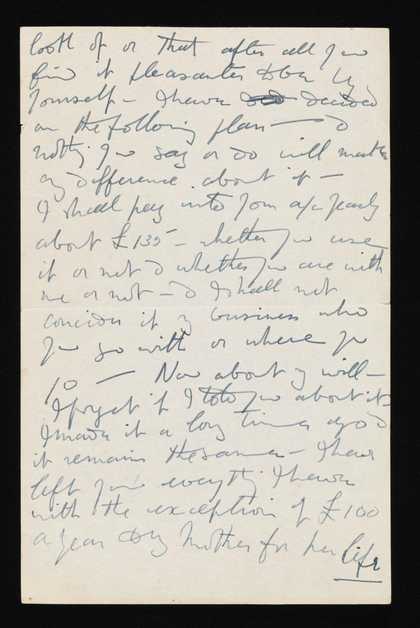 look of or that after all you
find it pleasanter to be by
yourself – I have decided
on the following plan – &
nothing you say or do will make
any difference about it –
I shall pay into your a/c yearly
about £135 – whether you use
it or not & whether you are with
me or not – & I shall not
consider it my business who
you go with or where you
go — Now about my will –
I forget if I told you about it
I made it a long time ago &
it remains the same – I have
left you everything I have
with the exception of £100
a year to my Mother for her life